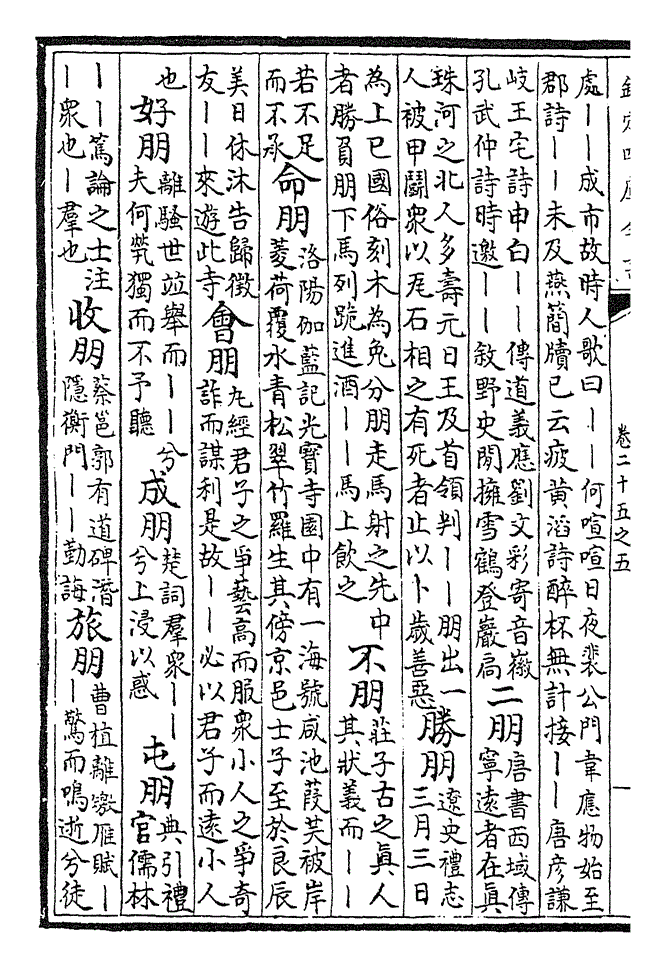 欽定四庫全書 卷二十五之五 一
處丨丨成市故時人歌曰丨丨何喧喧日夜裴公門韋應物始至
郡詩丨丨未及燕簡牘已云疲黄滔詩醉杯無計接丨丨唐彦謙
岐王宅詩申白丨丨傳道義應劉文彩寄音徽
孔武仲詩時邀丨丨敘野史閒擁雪鶴登巖扃
二朋
唐書西域傳
寧遠者在真
珠河之北人多壽元日王及首領判丨丨朋出一
人被甲鬭衆以瓦石相之有死者止以卜歲善惡
勝朋
遼史禮志
三月三日
為上巳國俗刻木為兔分朋走馬射之先中
者勝負朋下馬列跪進酒丨丨馬上飲之
不朋
莊子古之真人
其狀義而丨丨
若不足
而不承
命朋
洛陽伽藍記光寶寺園中有一海號咸池葭芙被岸
菱荷覆水青松翠竹羅生其傍京邑士子至於良辰
美日休沐告歸徵
友丨丨來遊此寺
會朋
九經君子之爭藝高而服衆小人之爭奇
詐而謀利是故丨丨必以君子而遠小人
也
好朋
離騷世竝舉而丨丨兮
夫何煢獨而不予聽
成朋
楚詞羣衆丨丨
兮上浸以惑
屯朋
典引禮
官儒林
丨丨篤論之士注
丨衆也丨羣也
收朋
蔡邕郭有道碑潛
隱衡門丨丨勤誨
旅朋
曹植離繳雁賦丨
丨驚而鳴逝兮徒